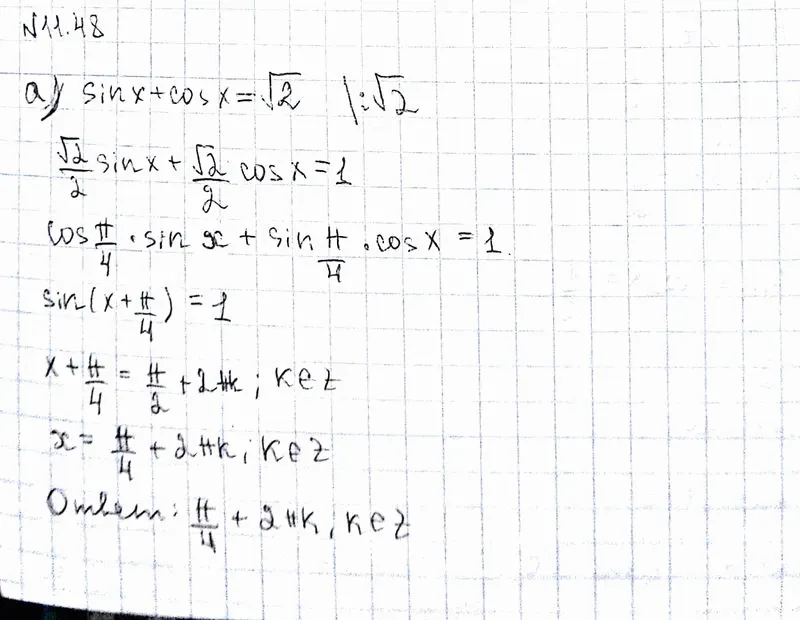 №11.48
а) sinx+cosx=√2 |:√2
√2/2 sinx + √2/2 cosx = 1
cos π/4 · sin x + sin π/4 · cosx = 1.
sin(x + π/4) = 1
x + π/4 = π/2 + 2πk; k∈z
x = π/4 + 2πk; k∈z
Ответ: π/4 + 2πk, k∈z